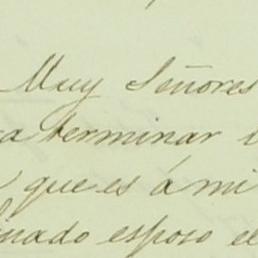 Muy Señores
a terminar
que es á mi
inado esposo el